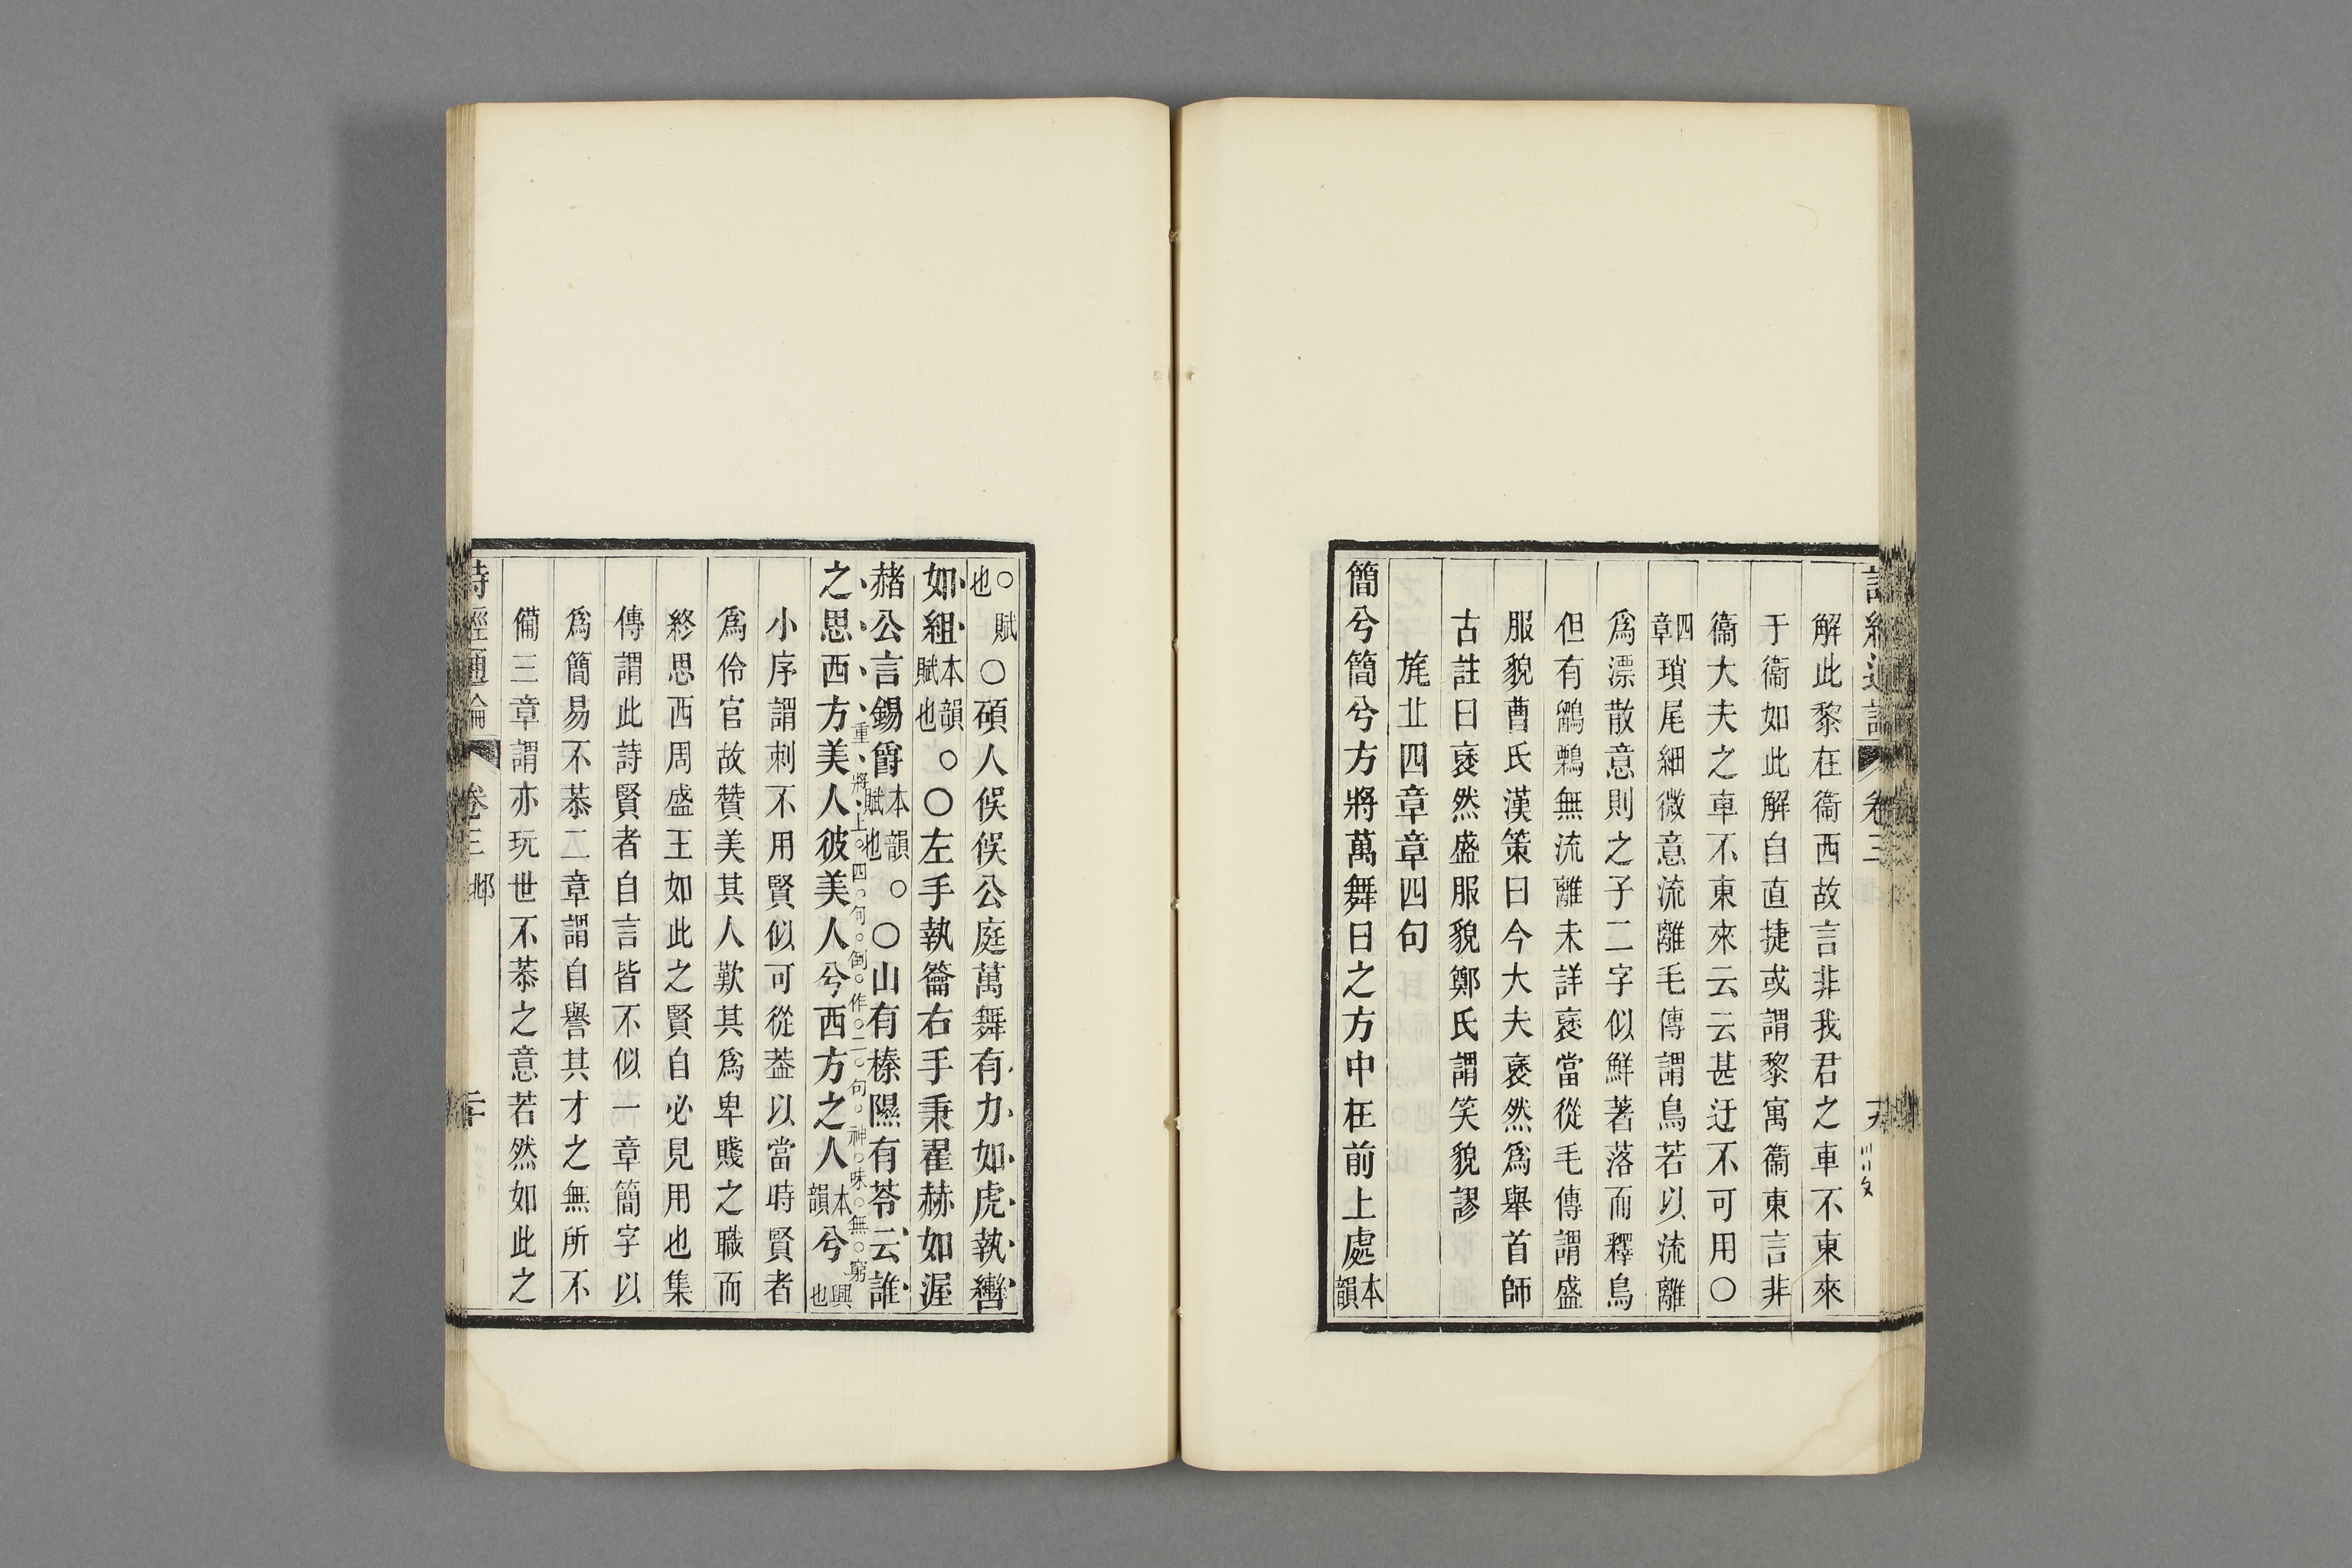 解此黎在衞西故言非我君之車不東來
于衞如此解自直捷或謂黎寓衞東言非
衞大夫之車不東來云云甚迂不可用〇
四章瑣尾細微意流離毛傳謂鳥若以流離
爲漂散意則之子二字似鮮著落而釋鳥
但有鶹鷅無流離未詳褎當從毛傳謂盛
服貌曹氏漢策曰今大夫褎然爲舉首師
古註曰褎然盛服貌鄭氏謂笑貌謬
旄丘四章章四句
簡兮簡兮方將萬舞日之方中在前上處本韻
〇賦也〇碩人俁俁公庭萬舞有力如虎執轡
如組本韻〇賦也〇左手執籥右手秉翟赫如渥
赭公言錫爵本韻〇賦也〇山有榛隰有苓云誰
之思西方美人彼美人兮西方之人本韻兮興也
重將上四句倒作二句神味無窮
小序謂刺不用賢似可從蓋以當時賢者
爲伶官故贊美其人歎其爲卑賤之職而
終思西周盛王如此之賢自必見用也集
傳謂此詩賢者自言皆不似一章簡字以
爲簡易不恭二章謂自譽其才之無所不
備三章謂亦玩世不恭之意若然如此之
詩經通論 卷三 邶 二十